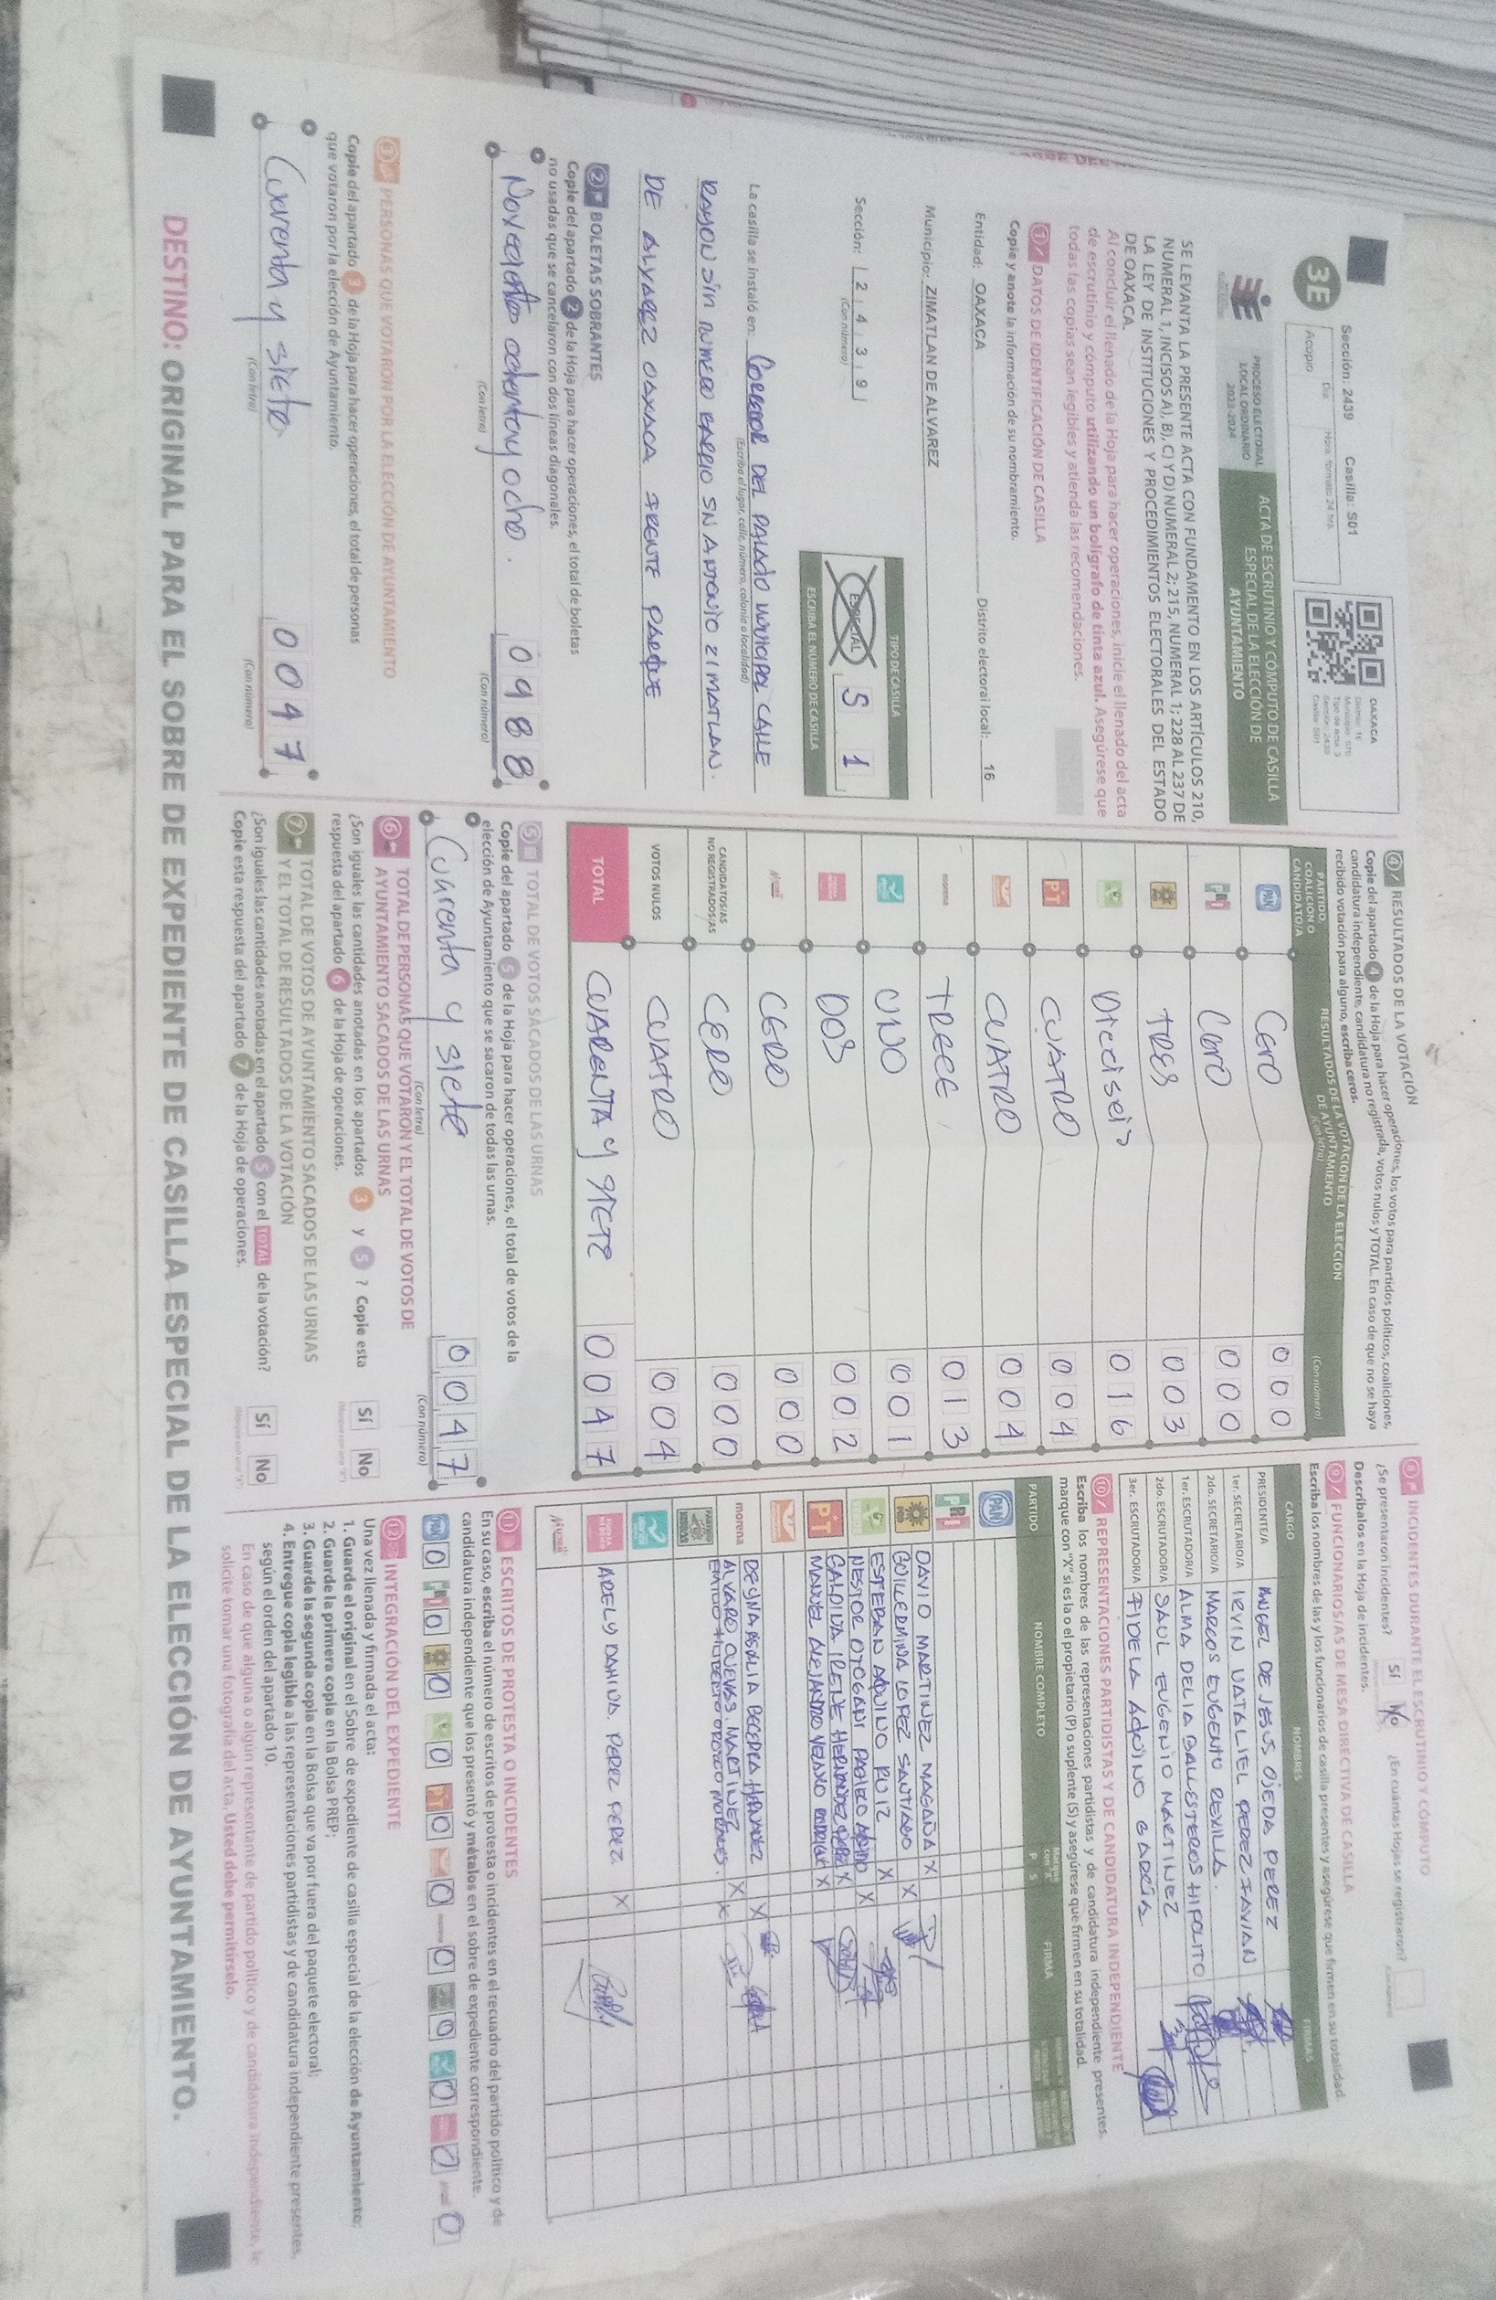 Sección: 2439 Casilla: S01
3E
Acopio
OAXACA
PROCESO ELECTORAL
LOCAL ORDINARIO
2023-2024
ACTA DE ESCRUTINIO Y CÓMPUTO DE CASILLA
ESPECIAL DE LA ELECCIÓN DE
AYUNTAMIENTO
SE LEVANTA LA PRESENTE ACTA CON FUNDAMENTO EN LOS ARTÍCULOS 210,
NUMERAL 1, INCISOS A), B), C) Y D) NUMERAL 2; 215, NUMERAL 1; 228 AL 237 DE
LA LEY DE INSTITUCIONES Y PROCEDIMIENTOS ELECTORALES DEL ESTADO
DE OAXACA.
Al concluir el llenado de la Hoja para hacer operaciones, inicie el llenado del acta
de escrutinio y cómputo utilizando un bolígrafo de tinta azul. Asegúrese que
todas las copias sean legibles y atienda las recomendaciones.
1 DATOS DE IDENTIFICACIÓN DE CASILLA
Copie y anote la información de su nombramiento.
Entidad: OAXACA Distrito electoral local: 16
Municipio: ZIMATLAN DE ALVAREZ
Sección: 2 4 3 9
(Con número)
TIPO DE CASILLA
ESPECIAL S 1
ESCRIBA EL NÚMERO DE CASILLA
La casilla se instaló en: CORREDOR DEL PALACIO MUNICIPAL CALLE
(Escriba el lugar, calle, número, colonia o localidad)
RAYON SIN NUMERO BARRIO SN ANTONIO ZIMATLAN.
DE ALVAREZ OAXACA FRENTE PARQUE
2 BOLETAS SOBRANTES
Copie del apartado 2 de la Hoja para hacer operaciones, el total de boletas
no usadas que se cancelaron con dos líneas diagonales.
Novecientos ochenta y ocho. 0988
(Con letra) (Con número)
3 PERSONAS QUE VOTARON POR LA ELECCIÓN DE AYUNTAMIENTO
Copie del apartado 3 de la Hoja para hacer operaciones, el total de personas
que votaron por la elección de Ayuntamiento.
Cuarenta y siete 0047
(Con letra) (Con número)
4 RESULTADOS DE LA VOTACIÓN
Copie del apartado 4 de la Hoja para hacer operaciones, los votos para partidos políticos, coaliciones,
candidatura independiente, candidatura no registrada, votos nulos y TOTAL. En caso de que no se haya
recibido votación para alguno, escriba ceros.
PARTIDO
COALICIÓN O
CANDIDATO/A
RESULTADOS DE LA VOTACIÓN DE LA ELECCIÓN
DE AYUNTAMIENTO
(Con letra)
(Con número)
PAN Cero 000
PRI Cero 000
TRES 003
Dieciseis 016
PT CUATRO 004
CUATRO 004
morena TRECE 013
UNO 001
DOS 002
CERO 000
CANDIDATOS/AS
NO REGISTRADOS/AS CERO 000
VOTOS NULOS CUATRO 004
TOTAL CUARENTA y SIETE 0047
5 TOTAL DE VOTOS SACADOS DE LAS URNAS
Copie del apartado 5 de la Hoja para hacer operaciones, el total de votos de la
elección de Ayuntamiento que se sacaron de todas las urnas.
Cuarenta y siete 0047
(Con letra) (Con número)
6 TOTAL DE PERSONAS QUE VOTARON Y EL TOTAL DE VOTOS DE
AYUNTAMIENTO SACADOS DE LAS URNAS
¿Son iguales las cantidades anotadas en los apartados 3 y 5 ? Copie esta
respuesta del apartado 6 de la Hoja de operaciones. Sí No
7 TOTAL DE VOTOS DE AYUNTAMIENTO SACADOS DE LAS URNAS
Y EL TOTAL DE RESULTADOS DE LA VOTACIÓN
¿Son iguales las cantidades anotadas en el apartado 5 con el TOTAL de la votación?
Copie esta respuesta del apartado 7 de la Hoja de operaciones. Sí No
8 INCIDENTES DURANTE EL ESCRUTINIO Y CÓMPUTO
¿Se presentaron incidentes? Sí No ¿En cuántas Hojas se registraron?
Descríbalos en la Hoja de incidentes.
9 FUNCIONARIOS/AS DE MESA DIRECTIVA DE CASILLA
Escriba los nombres de las y los funcionarios de casilla presentes y asegúrese que firmen en su totalidad
CARGO NOMBRES FIRMAS
PRESIDENTE/A ANGEL DE JESUS OJEDA PEREZ
1er. SECRETARIO/A IRVIN NATALIEL PEREZ
2do. SECRETARIO/A MARCOS EUGENIO REVILLA.
1er. ESCRUTADOR/A ALMA DELIA BALLESTEROS HIPOLITO
2do. ESCRUTADOR/A SAUL EUGENIO MARTINEZ
3er. ESCRUTADOR/A FIDELA AQUINO GARCIA
10 REPRESENTACIONES PARTIDISTAS Y DE CANDIDATURA INDEPENDIENTE
Escriba los nombres de las representaciones partidistas y de candidatura independiente presentes,
marque con "X" si es la o el propietario (P) o suplente (S) y asegúrese que firmen en su totalidad.
PARTIDO NOMBRE COMPLETO P S FIRMA
PAN
PRI
DAVID MARTINEZ MAGAÑA X
GUILLERMINA LOPEZ SANTIAGO X
ESTEBAN AQUINO RUIZ X
NESTOR X
PT X
MANUEL ALEJANDRO X
morena X
ALVARO CUEVAS MARTINEZ X
X
ARELY DAHINA PEREZ PEREZ X
11 ESCRITOS DE PROTESTA O INCIDENTES
En su caso, escriba el número de escritos de protesta o incidentes en el recuadro del partido político y de
candidatura independiente que los presentó y métalos en el sobre de expediente correspondiente.
PAN 0 PRI 0 0 0 PT 0 0 0 0 0 0 0
12 INTEGRACIÓN DEL EXPEDIENTE
Una vez llenada y firmada el acta:
1. Guarde el original en el Sobre de expediente de casilla especial de la elección de Ayuntamiento;
2. Guarde la primera copia en la Bolsa PREP;
3. Guarde la segunda copia en la Bolsa que va por fuera del paquete electoral;
4. Entregue copia legible a las representaciones partidistas y de candidatura independiente presentes,
según el orden del apartado 10.
En caso de que alguna o algún representante de partido político y de candidatura independiente, le
solicite tomar una fotografía del acta, Usted debe permitírselo.
DESTINO: ORIGINAL PARA EL SOBRE DE EXPEDIENTE DE CASILLA ESPECIAL DE LA ELECCIÓN DE AYUNTAMIENTO.